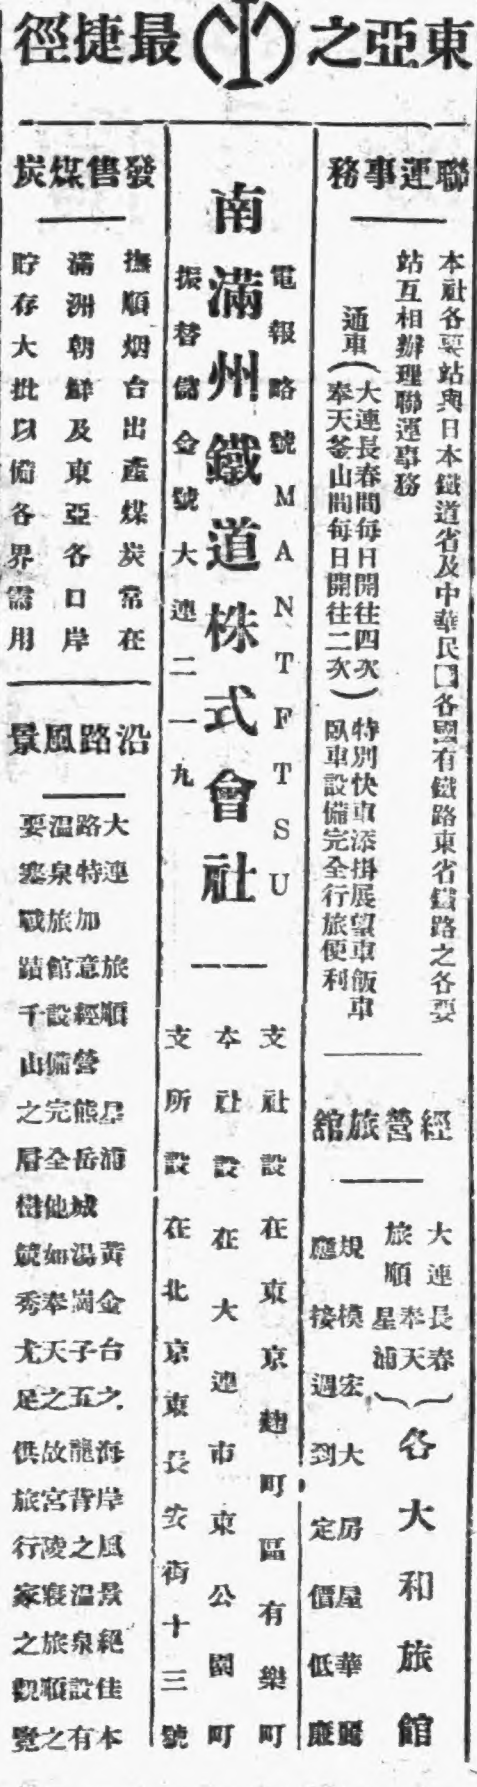 東亞之最捷徑
聯運事務
本社各要站與日本鐵道省及中華民國各國有鐵路東省鐵路之各要
站互相辦理聯運事務
通車(大連長春間每日開往四次
奉天釜山間每日開往二次)
特別快車添掛展望車飯車
臥車設備完全行旅便利
經營旅館
大連長春
旅順奉天
星浦
各大和旅館
規模宏大房屋華麗
應接週到定價低廉
電報略號MANTFTSU
南滿州鐵道株式會社
振替儲金號大連二一九
支社設在東京麴町區有樂町
本社設在大連市東公園町
支所設在北京東長安街十三號
發售煤炭
撫順烟台出產煤炭常在
滿洲朝鮮及東亞各口岸
貯存大批以備各界需用
沿路風景
大連 旅順 星浦 黃金台之海岸風景絕佳本
路特加意經營熊岳城湯崗子五龍背之溫泉設有
溫泉旅館設備完全他如奉天之故宮陵寢旅順之
要塞戰蹟千山之層樹競秀尤足供旅行家之觀覽